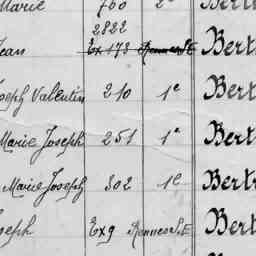 Marie 760 2e Bertr
2822
Jean Ex 173 Rennes S.E Bert
Joseph Valentin 210 1e Bert
Marie Joseph 251 1e Bert
Marie Joseph 302 1e Bertr
Joseph Ex 9 Rennes S.E Bert